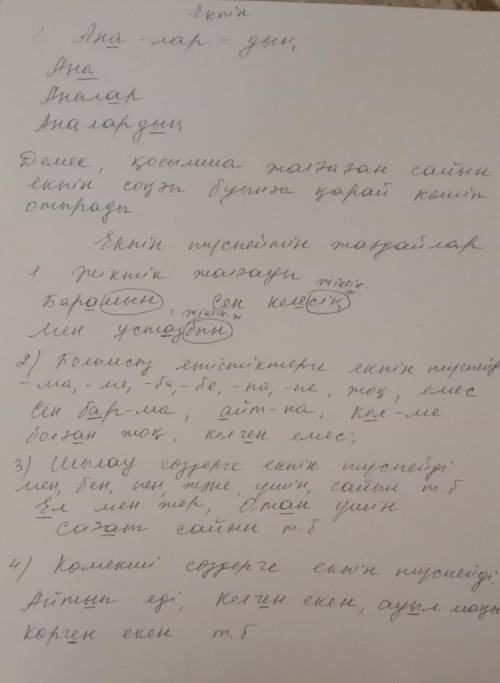 Екпін
1. Ана - лар - дың
Ана
Аналар
Аналардың
Демек, қосымша жалғаған сайын
екпін соңғы буынға қарай көшіп
отырады
Екпін түспейтін жағдайлар
1. Жіктік жалғауы
жіктік.
Барамын, Сен келесің
жіктік.ж
Мен ұстазбын
2) Болымсыз етістіктерге екпін түспейді
-ма, -ме, -ба, -бе, -па, -пе, жоқ, емес
Сен бар-ма, айт-па, кел-ме
болған жоқ, келген емес;
3) Шылау сөздерге екпін түспейді
мен, бен, пен, және, үшін, сайын т.б
Ел мен жер, Отан үшін
Сағат сайын т.б
4) Көмекші сөздерге екпін түспейді
Айтып еді, келген екен, ауыл маңы
көрген екен т.б